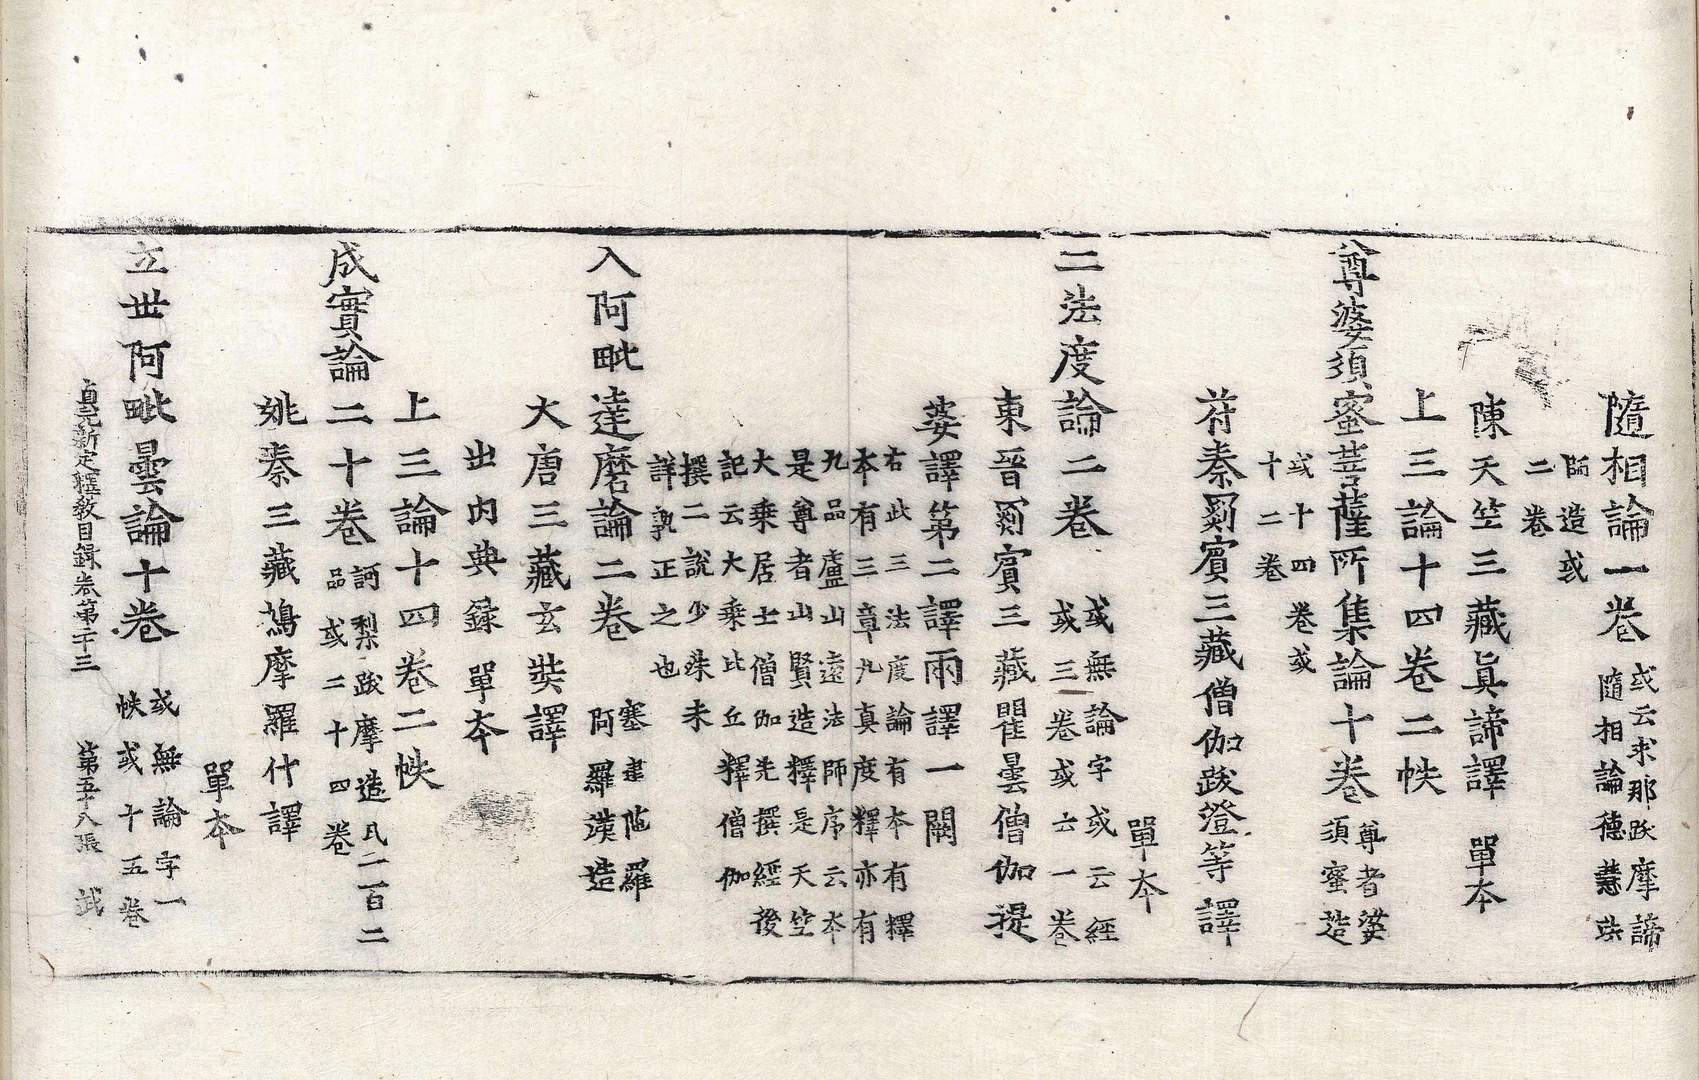 隨相論一卷 或云求那跋摩諦
隨相論德慧法
師造或
二卷
陳天竺三藏眞諦譯 單夲
上三論十四卷二帙
尊婆須蜜菩薩所集論十卷 尊者婆
須蜜造
或十四卷或
十二卷
苻秦罽賓三藏僧伽跋澄等譯
單夲
三法度論二卷 或無論字或云經
或三卷或云一卷
東晉罽賓三藏瞿曇僧伽提
婆譯第二譯兩譯一闕
右此三法度論有夲有釋
夲有三章九真度釋亦有
九品廬山遠法師序云夲
是尊者山賢造釋是天竺
大乘居士僧伽先撰經後
記云大乘比丘釋僧伽
撰二說少殊未
詳孰正之也
入阿毗達磨論二卷 塞建陁羅
阿羅漢造
大唐三藏玄奘譯
出內典録單夲
上三論十四卷二帙
成實論二十卷 訶梨跋摩造凡二百二
品或二十四卷
姚秦三藏鳩摩羅什譯
單夲
立世阿毗曇論十卷 或無論字一
帙或十五卷
貞元新定釋教目録卷第二十三 第五十八張 武